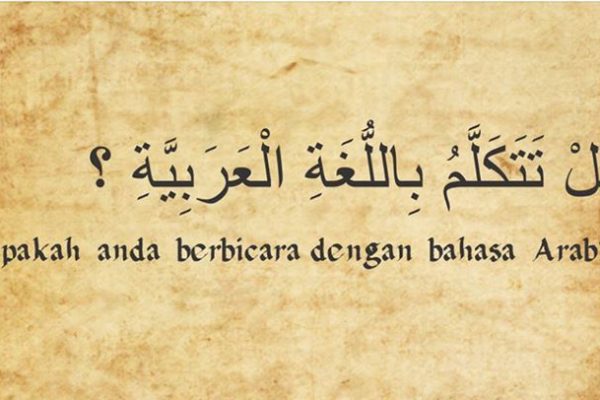 لْ تَتَكَلَّمُ بِاللُّغَةِ الْعَرَبِيَّةِ ؟
pakah anda berbicara dengan bahasa Arab